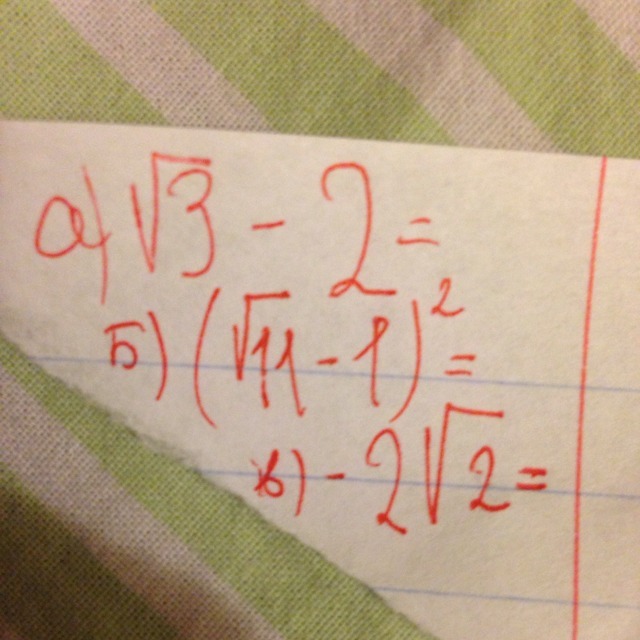 а) √3 - 2 =
б) (√11 - 1)² =
в) - 2√2 =